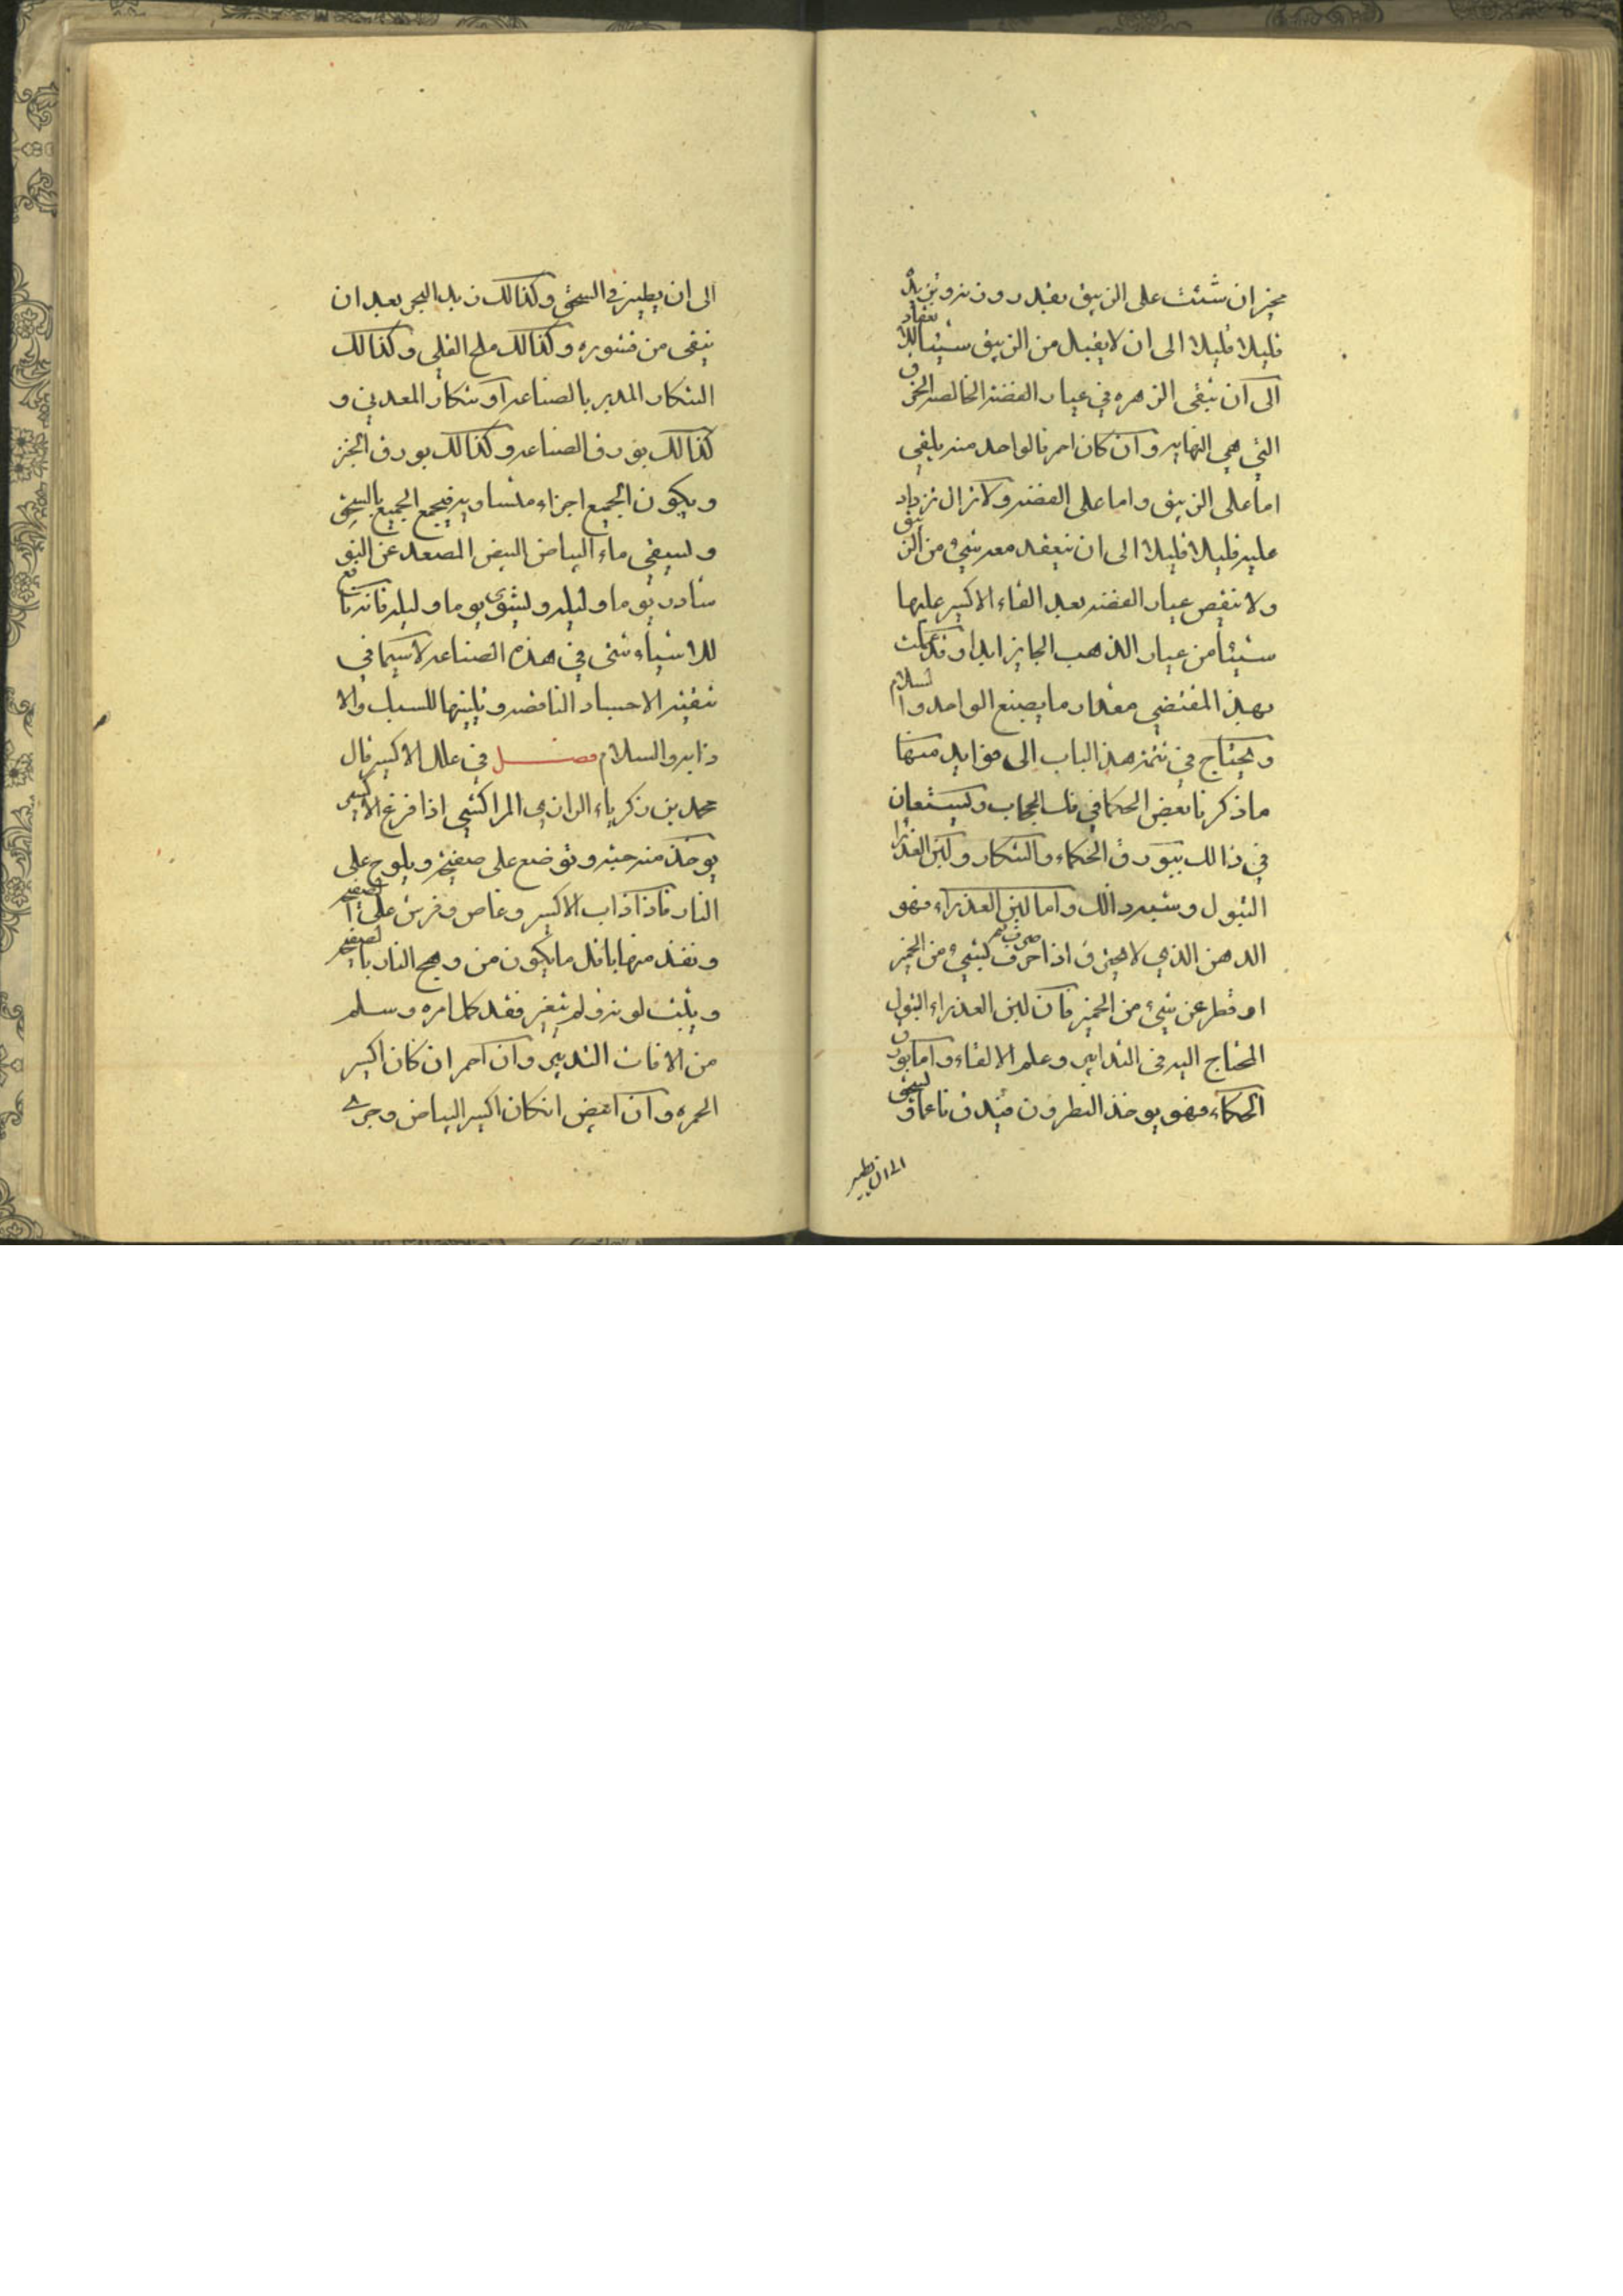 مخير ان شئت على الزيبق بقدر وزنه وتزيد
قليلا قليلا الى ان لا يقبل من الزيبق شيئا للانعقاد
الى ان تبقى الزهره في عيار الفضه الخالصه الحرف
التي هي النهايه وان كان احمر فالواحد منه يلقى
اما على الزيبق واما على الفضه ولا تزال تزداد
عليه قليلا قليلا الى ان ينعقد معه شيء من الزيبق
ولا ينقص عيار الفضه بعد القاء الاكسير عليها
شيئا من عيار الذهب الجايز ابدا وقد علمت
بهذ المقتضي مقدار ما يصبغ الواحد والسلام
ويحتاج في تتمة هذ الباب الى فوايد منها
ما ذكرنا بعض الحكما في الحجاب ويستعان
في ذالك ببورق الحكماء والتنكار ولبن العذرا
البتول وشبه ذالك واما لبن العذراء فهو
الدهن الذي لا يحترق اذا حرق بشيء من الخمير
او قطر عن شيء من الخمير فان لبن العذراء البتول
المحتاج اليه في التدابير وعلم الالقاء واما بورق
الحكماء فهو يوخذ النطرون فيدق ناعما ويسحق
الى ان يطير
الى ان يطير في السحق وكذالك زبد البحر بعد ان
ينقى من قشوره وكذالك ملح القلي وكذالك
التنكار المدبر بالصناعه او تنكار المعدني و
كذالك بورق الصناعه وكذالك بورق الخبز
ويكون الجميع اجزاء متساويه فيجمع الجميع بالسحق
ويسقي ماء البياض البيض المصعد عن النو
شادر يوما وليله ويشوى يوما وليله فانه نافع
للاشياء شتى في هذه الصناعه لا سيما في
تنقية الاجساد الناقصه وتليينها للسبك والا
ذابه والسلام فصل في علل الاكسير قال
محمد بن زكرياء الرازي المراكشي اذا فرغ الاكسير
يوخذ منه حبه وتوضع على صفيحة ويلوح على
النار فاذا ذاب الاكسير وغاص وفرش على الصفيحه
ونفذ منها باقل ما يكون من وهج النار بالصفيحه
ويثبت لونه ولم يتغير فقد كمل امره وسلم
من الافات التدبير وان احمر ان كان اكسير
الحمره وان ابيض انكان اكسير البياض وجرى